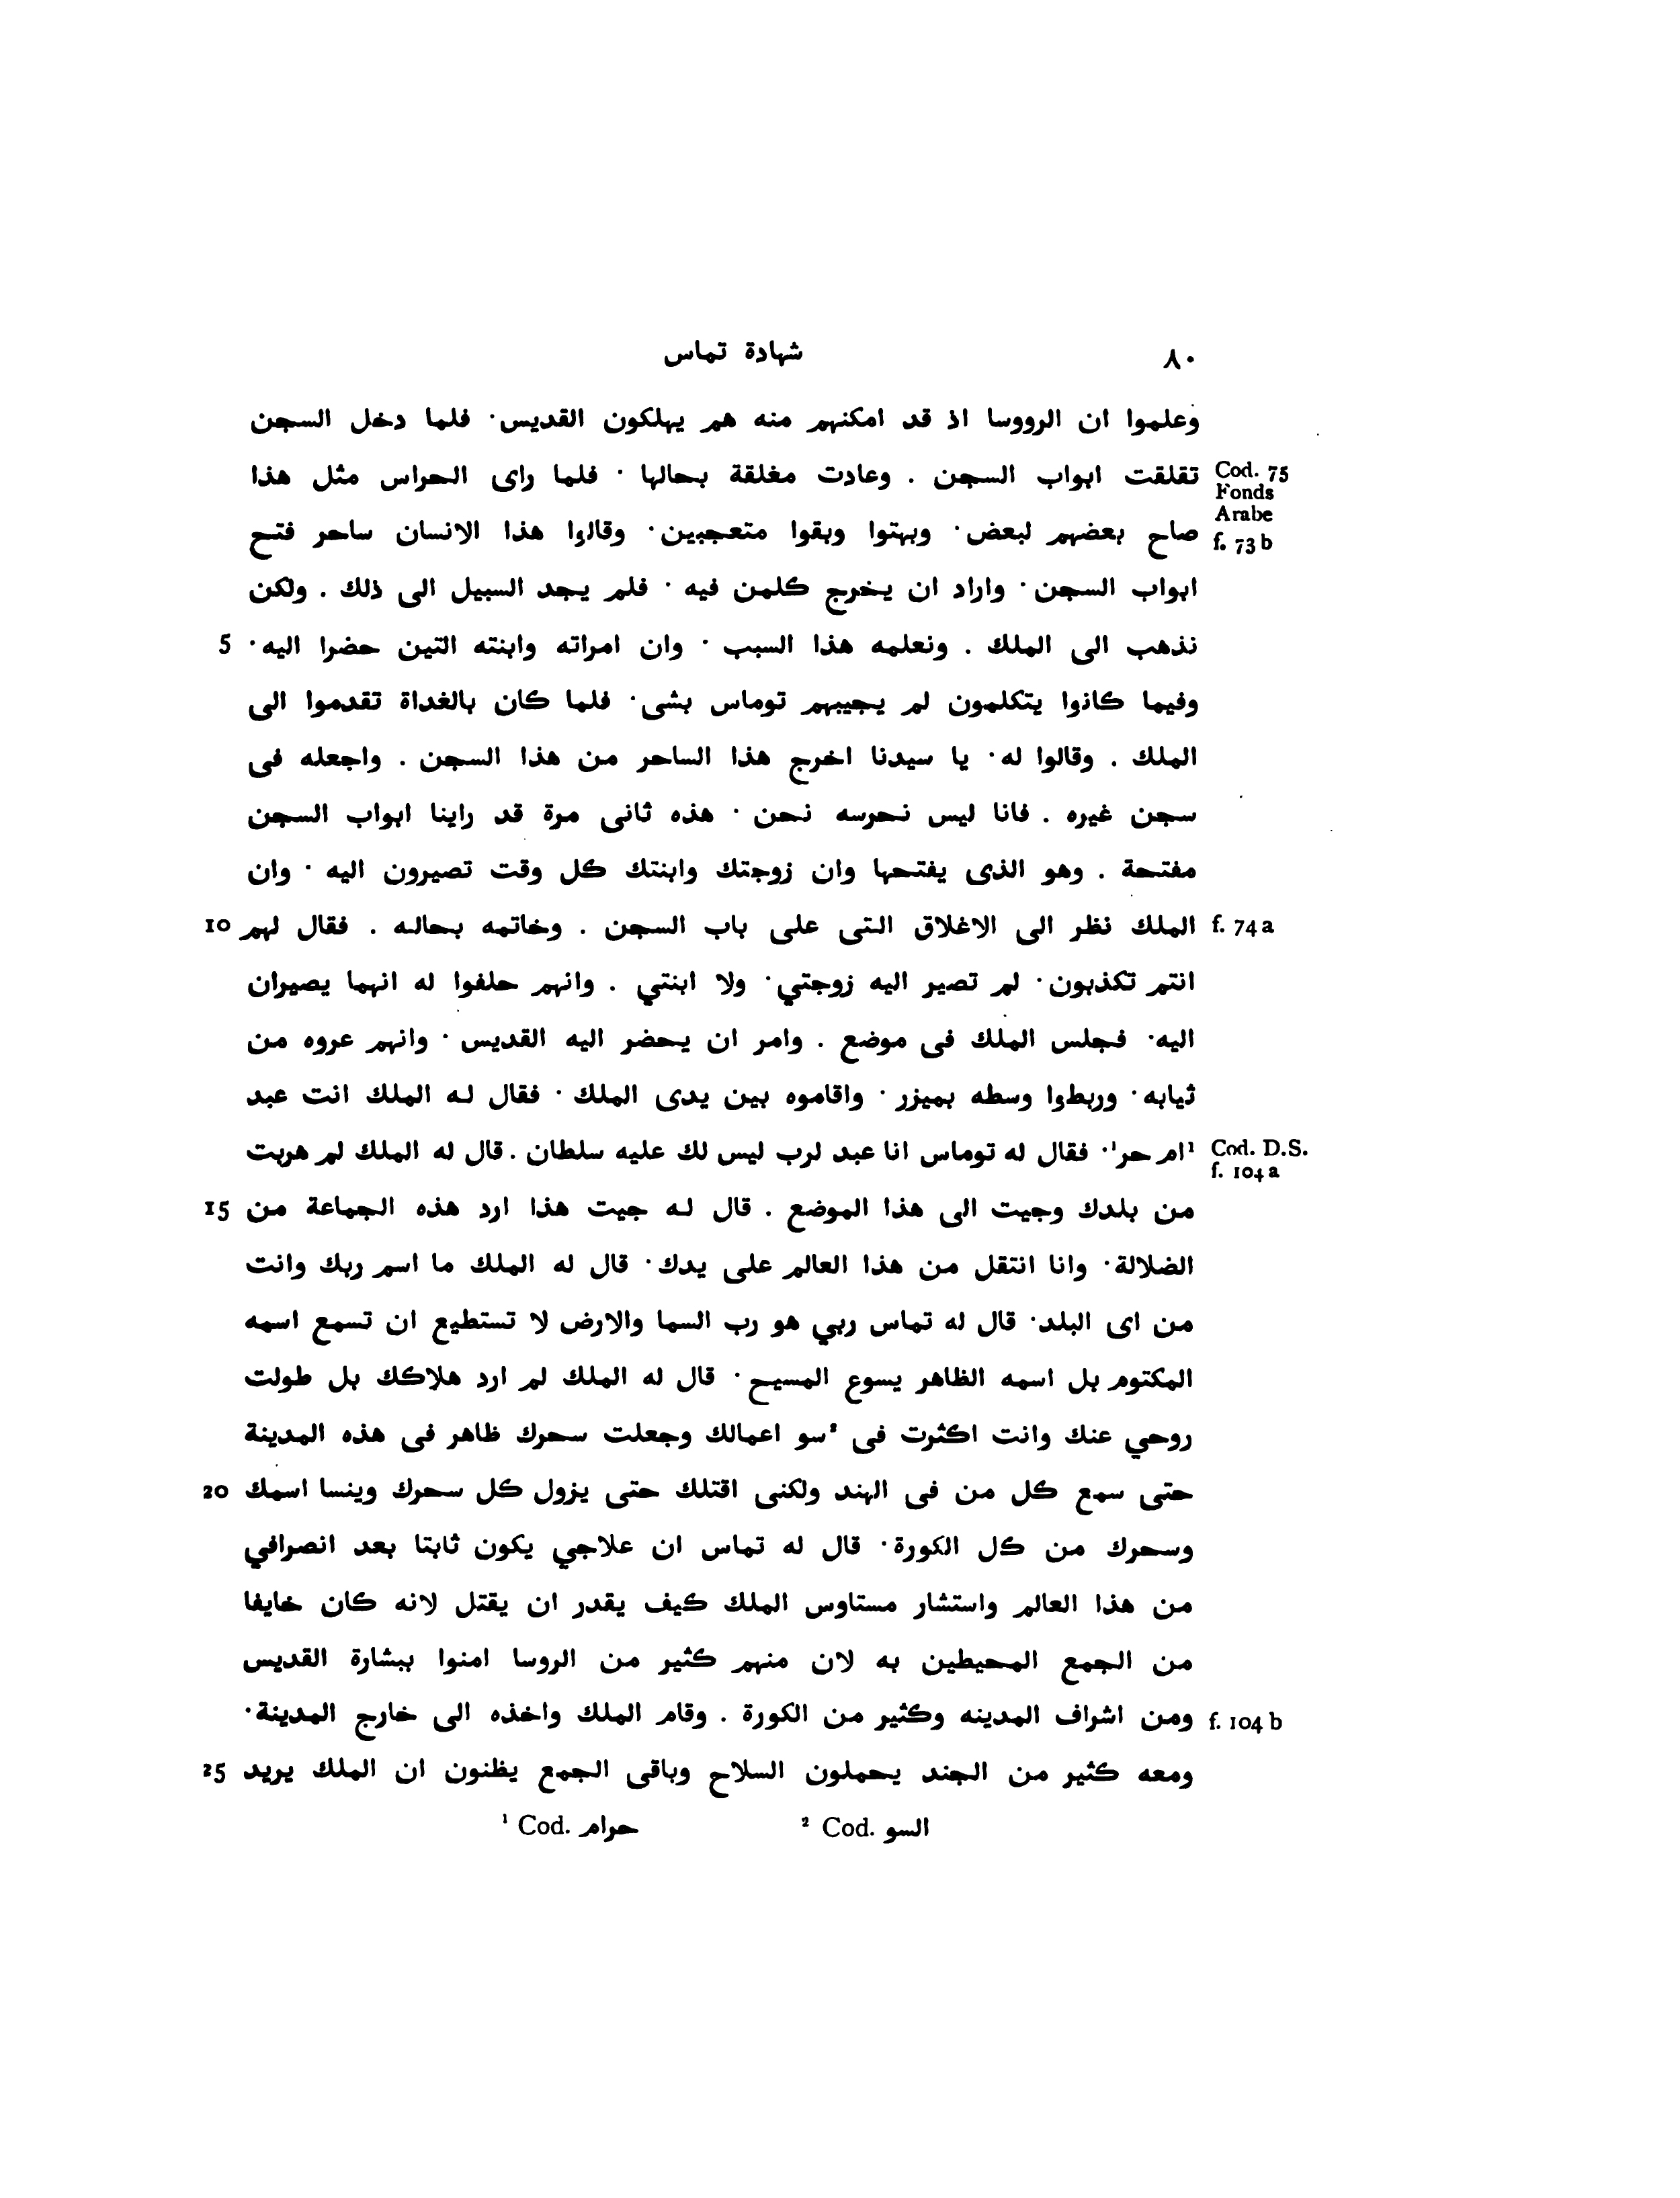 ٨٠ شهادة تماس
وعلموا ان الرووسا اذ قد امكنهم منه هم يهلكون القديس٠ فلما دخل السجن
Cod. 75 Fonds Arabe f. 73 b تقلقت ابواب السجن . وعادت مغلقة بحالها ٠ فلما راى الحراس مثل هذا
صاح بعضهم لبعض٠ وبهتوا وبقوا متعجبين٠ وقالوا هذا الانسان ساحر فتح
ابواب السجن٠ واراد ان يخرج كلمن فيه ٠ فلم يجد السبيل الى ذلك . ولكن
نذهب الى الملك . ونعلمه هذا السبب ٠ وان امراته وابنته التين حضرا اليه٠ 5
وفيما كانوا يتكلمون لم يجيبهم توماس بشى٠ فلما كان بالغداة تقدموا الى
الملك . وقالوا له٠ يا سيدنا اخرج هذا الساحر من هذا السجن . واجعله فى
سجن غيره . فانا ليس نحرسه نحن ٠ هذه ثانى مرة قد راينا ابواب السجن
مفتحة . وهو الذى يفتحها وان زوجتك وابنتك كل وقت تصيرون اليه ٠ وان
f. 74 a الملك نظر الى الاغلاق التى على باب السجن . وخاتمه بحاله . فقال لهم 10
انتم تكذبون٠ لم تصير اليه زوجتي٠ ولا ابنتي . وانهم حلفوا له انهما يصيران
اليه٠ فجلس الملك فى موضع . وامر ان يحضر اليه القديس ٠ وانهم عروه من
ثيابه٠ وربطوا وسطه بميزر٠ واقاموه بين يدى الملك ٠ فقال له الملك انت عبد
Cod. D.S. f. 104 a ¹ام حر¹٠ فقال له توماس انا عبد لرب ليس لك عليه سلطان . قال له الملك لم هربت
من بلدك وجيت الى هذا الموضع . قال له جيت هذا ارد هذه الجماعة من 15
الضلالة٠ وانا انتقل من هذا العالم على يدك٠ قال له الملك ما اسم ربك وانت
من اى البلد٠ قال له تماس ربي هو رب السما والارض لا تستطيع ان تسمع اسمه
المكتوم بل اسمه الظاهر يسوع المسيح ٠ قال له الملك لم ارد هلاكك بل طولت
روحي عنك وانت اكثرت فى ²سو اعمالك وجعلت سحرك ظاهر فى هذه المدينة
حتى سمع كل من فى الهند ولكنى اقتلك حتى يزول كل سحرك وينسا اسمك 20
وسحرك من كل الكورة٠ قال له تماس ان علاجي يكون ثابتا بعد انصرافي
من هذا العالم واستشار مستاوس الملك كيف يقدر ان يقتل لانه كان خايفا
من الجمع المحيطين به لان منهم كثير من الروسا امنوا ببشارة القديس
f. 104 b ومن اشراف المدينه وكثير من الكورة . وقام الملك واخذه الى خارج المدينة٠
ومعه كثير من الجند يحملون السلاح وباقى الجمع يظنون ان الملك يريد 25
¹ Cod. حرام ² Cod. السو